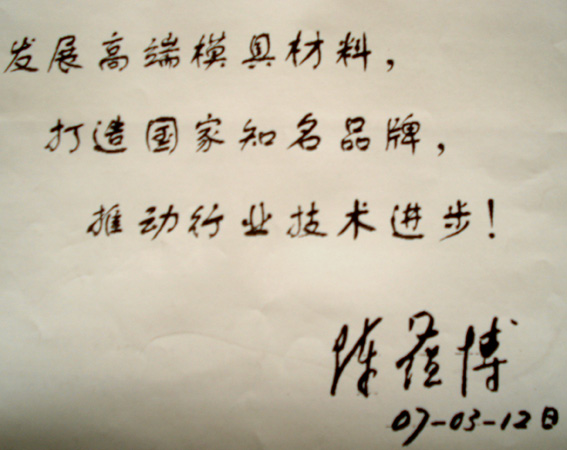 发展高端模具材料，
打造国家知名品牌，
推动行业技术进步！
陈蕴博
07-03-12日